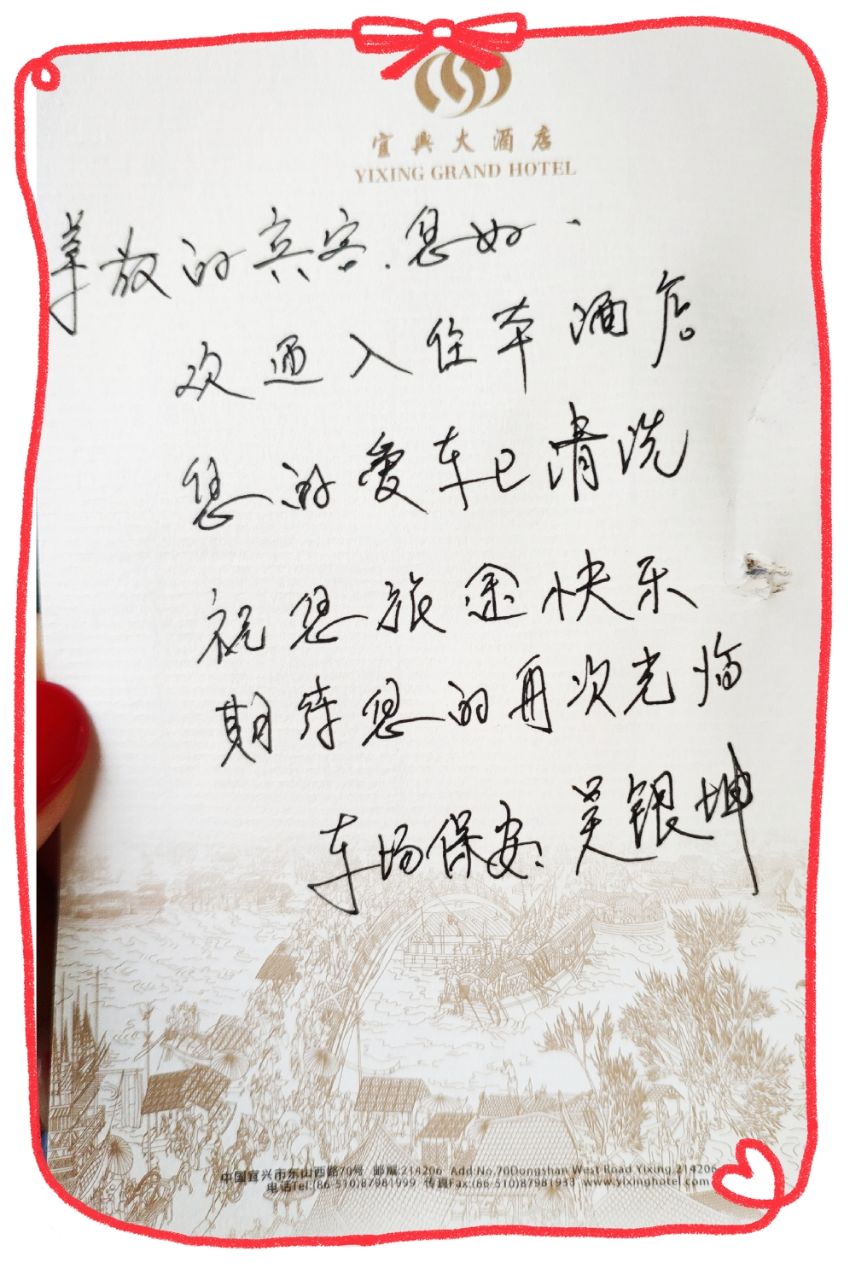 宜興大酒店
YIXING GRAND HOTEL
尊敬的宾客.您好.
欢迎入住本酒店
您的爱车已清洗
祝您旅途快乐
期待您的再次光临
车场保安:吴银坤
中国宜兴市东山西路70号 邮编:214206 Add:No.70Dongshan West Road Yixing,214206
电话Tel:(86-510)87981999 传真Fax:(86-510)87981933 www.yixinghotel.com